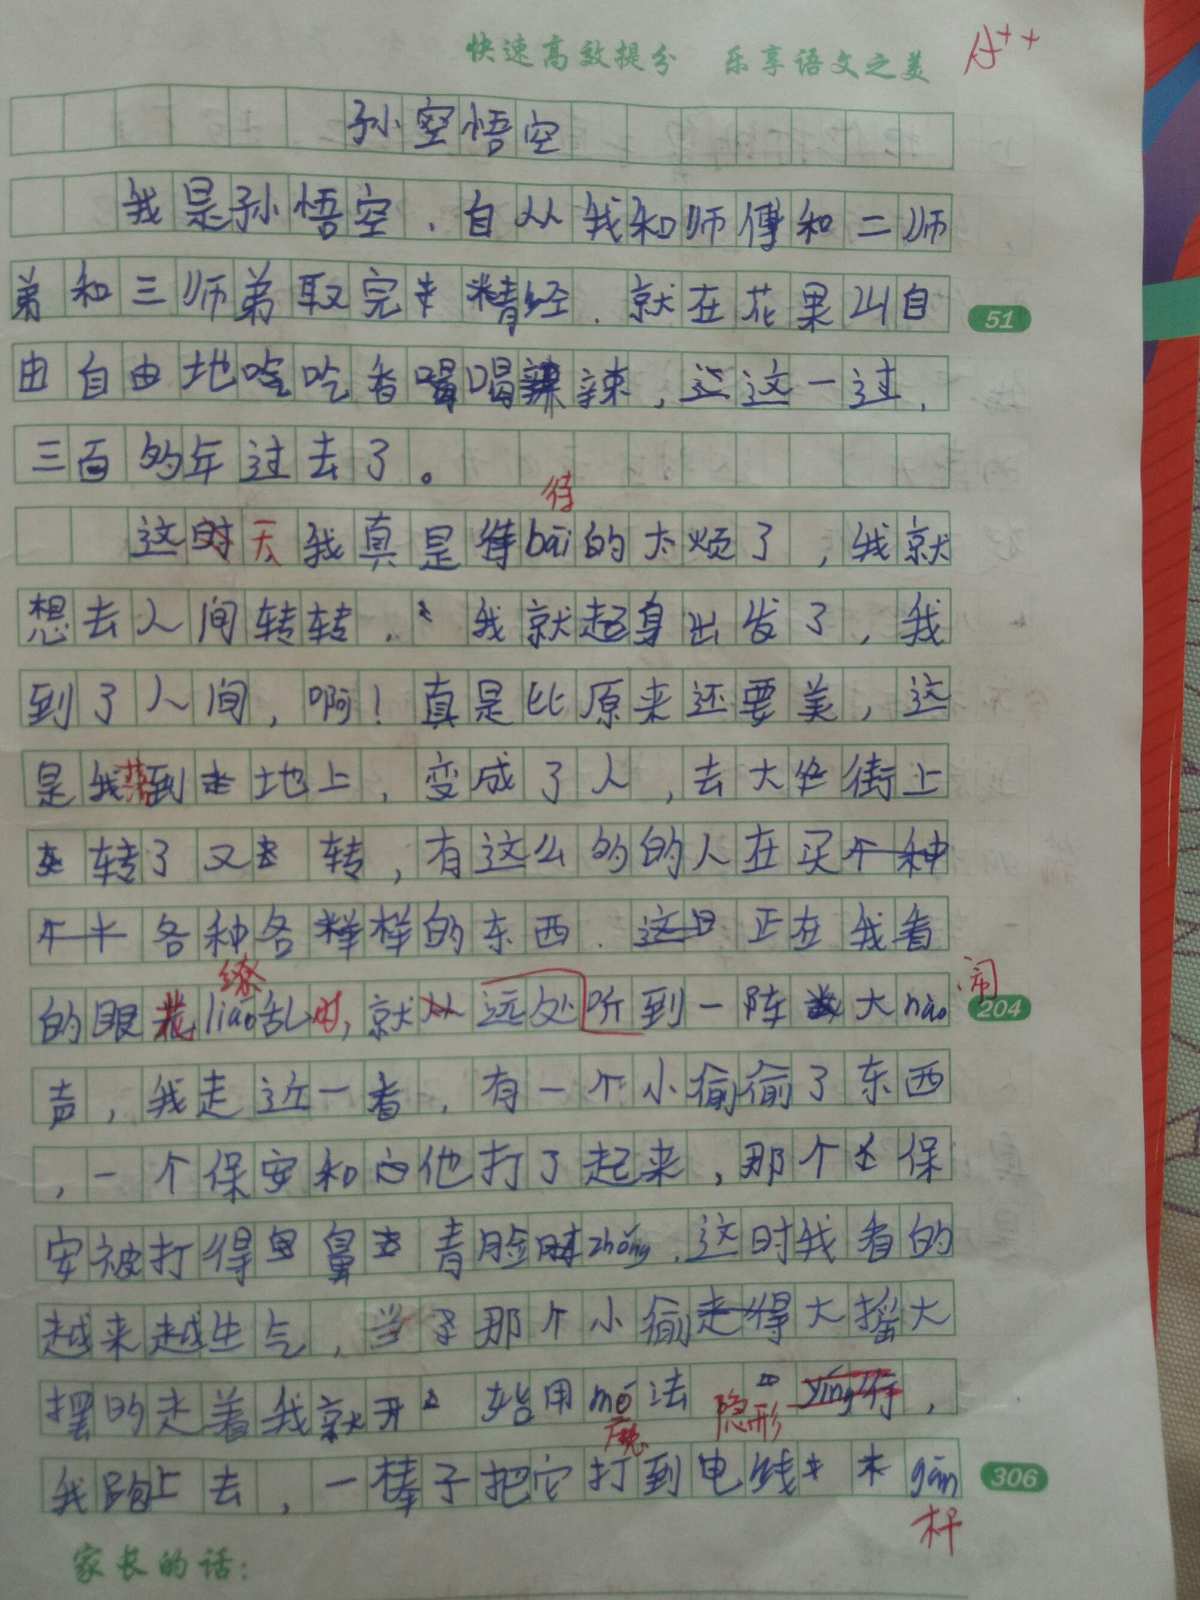 快速高效提分 乐享语文之美
A++
孙空悟空
我是孙悟空，自从我和师傅和二师
弟和三师弟取完精经，就在花果山自
51
由自由地吃吃香喝喝辣辣，这一过，
三百的年过去了。
待
这天我真是待bāi的太烦了，我就
想去人间转转，我就起身出发了，我
到了人间，啊！真是比原来还要美，这
是我落到地上，变成了人，去大街上
转了又转，有这么的的人在买个种
各种各样样的东西．这正在我看
缭
闹
的眼花liáo乱时，就从远处听到一阵大nào
204
声，我走近一看，有一个小偷偷了东西
，一个保安和他打了起来，那个保
安被打得鼻青脸zhǒng．这时我看的
越来越生气，当那个小偷走得大摇大
摆的走着我就开始用mó法 yíng行，
魔
隐形
我跑上去，一棒子把它打到电线木gān
杆
306
家长的话：